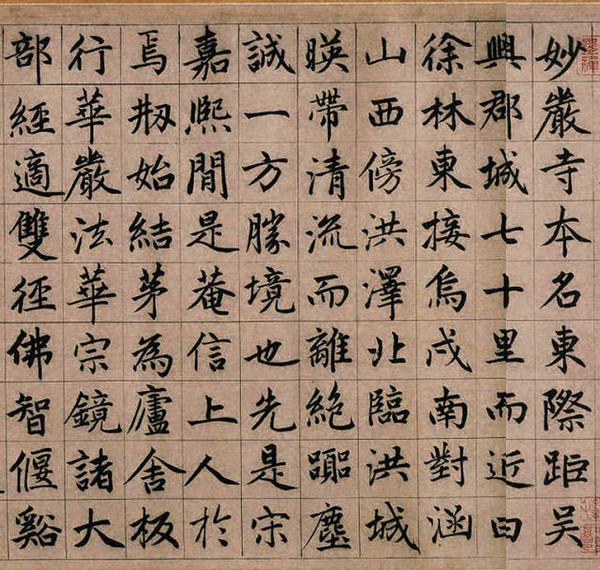 妙嚴寺本名東際距吳
興郡城七十里而近曰
徐林東接烏戍南對涵
山西傍洪澤北臨洪城
暎帶清流而離絕塵
誠一方勝境也先是宋
嘉熙間是菴信上人於
焉刱始結茅為廬舍板
行華嚴法華宗鏡諸大
部經適雙徑佛智偃谿